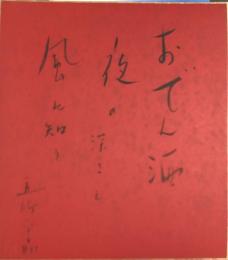 おでん酒
夜の深さを
風に知り